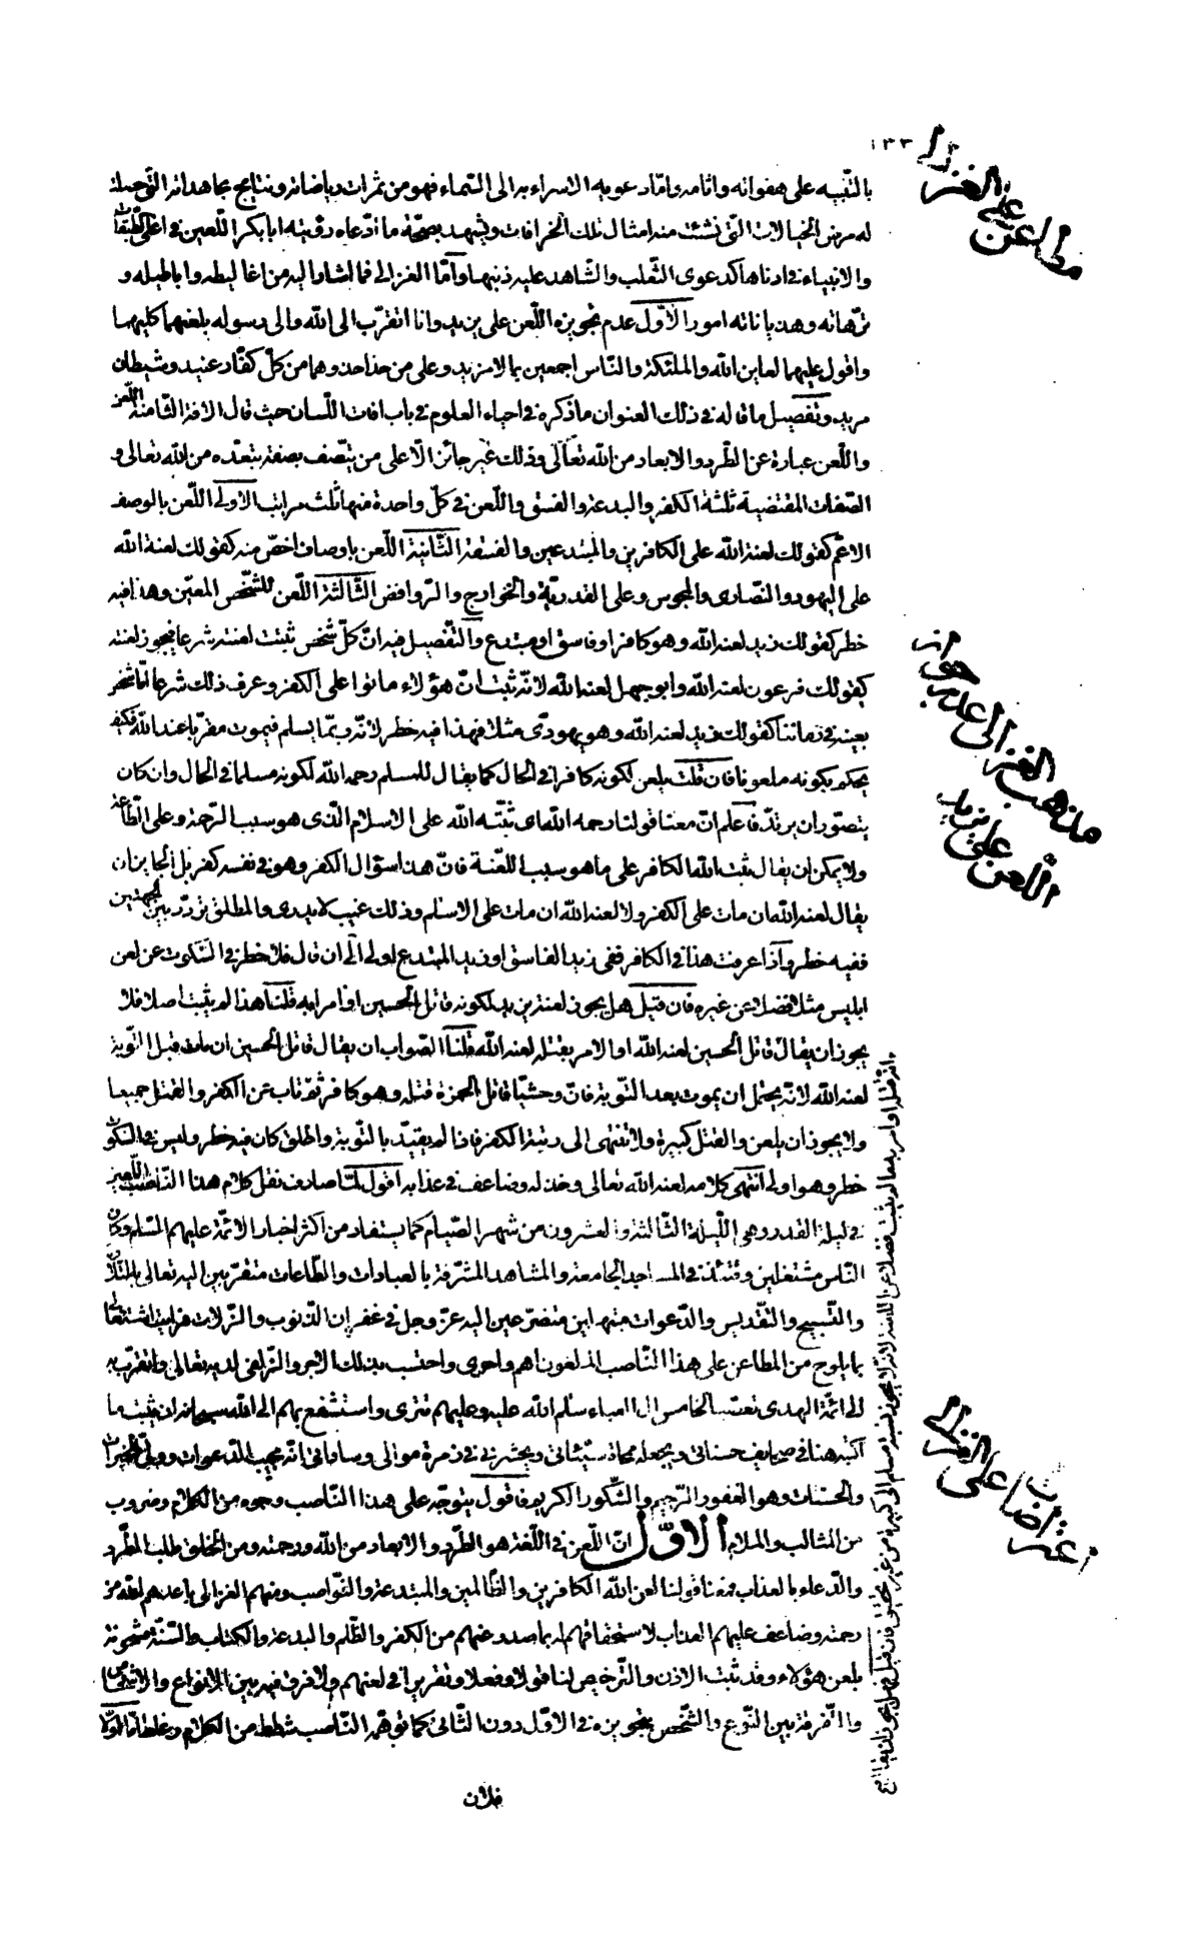 ١٣٣
مطاعن على الغزالى
بالتّنبيه على هفواته واثامه وامّا دعويه الاسراء به الى السّماء فهو من ثمرات رياضاته ونتايج مجاهداته الّتى حصلت
له مرض الخيالات الّتى نشئت منه امثال تلك الخرافات ويشهد بصحّة ما ادّعاه رؤيته ابابكر اللّعين فى اعلى الطّبقات
والانبياء فى ادناها كدعوى الثّعلب والشّاهد عليه ذنبها وامّا الغزالى فما اشار اليه من اغاليطه واباطيله و
ترّهاته وهذياناته امور الاوّل عدم تجويزه اللّعن على يزيد وانا اتقرّب الى الله والى رسوله بلعنهما كليهما
واقول عليهما لعاين الله والملئكة والنّاس اجمعين بالامزيد وعلى من حذا حذوهما من كلّ كفّار عنيد وشيطان
مريد وتفصيل ما قاله فى ذلك العنوان ما ذكره فى احياء العلوم فى باب افات اللّسان حيث قال الافة الثّامنة اللّعن
واللّعن عبارة عن الطّرد والابعاد من الله تعالى وذلك غير جائز الّا على من يتّصف بصفة يتبعّده من الله تعالى و
الصّفات المقتضية ثلثة الكفر والبدعة والفسق واللّعن فى كلّ واحدة منها ثلث مراتب الاولى اللّعن بالوصف
الاعمّ كقولك لعنة الله على الكافرين والمبتدعين والفسقة الثّانية اللّعن باوصاف اخصّ منه كقولك لعنة الله
على اليهود والنّصارى والمجوس وعلى القدريّة والخوارج والرّوافض الثّالثة اللّعن للشّخص المعيّن وهذا فيه
خطر كقولك زيد لعنه الله وهو كافر او فاسق او مبتدع والتّفصيل فيه انّ كلّ شخص ثبتت لعنته شرعا فيجوز لعنته
كقولك فرعون لعنه الله وابو جهل لعنه الله لانّه ثبت انّ هؤلاء ماتوا على الكفر وعرف ذلك شرعا امّا شخص
بعينه فى زماننا كقولك زيد لعنه الله وهو يهودىّ مثلا فهذا فيه خطر لانّه ربّما يسلم فيموت مقرّبا عند الله فكيف
يحكم بكونه ملعونا فان قلت يلعن لكونه كافرا فى الحال كما يقال للمسلم رحمه الله لكونه مسلما فى الحال وان كان
يتصوّر ان يرتدّ فاعلم انّ معنا قولنا رحمه الله اى ثبّته الله على الاسلام الّذى هو سبب الرّحمة وعلى الطّاعة
ولا يمكن ان يقال ثبّت الله الكافر على ما هو سبب اللّعنة فانّ هذا سؤال الكفر وهو فى نفسه كفر بل الجايز ان
يقال لعنه الله ان مات على الكفر ولا لعنه الله ان مات على الاسلام وذلك غيب لا يدرى والمطلق تردّد بين الجهتين
ففيه خطر واذا عرفت هذا فى الكافر ففى زيد الفاسق او زيد المبتدع اولى الى ان قال فلا خطر فى السّكوت عن لعن
ابليس مثلا فضلا عن غيره فان قيل هل يجوز لعنة يزيد لكونه قاتل الحسين او امر ابه قلنا هذا لم يثبت اصلا فلا
يجوز ان يقال قاتل الحسين لعنه الله او الامر بقتله لعنه الله قلنا الصّواب ان يقال قاتل الحسين ان مات قبل التّوبة
لعنه الله لانّه يحتمل ان يموت بعد التّوبة فانّ وحشيّا قاتل الحمزة قتله وهو كافر ثمّ تاب عن الكفر والقتل جميعا
ولا يجوز ان يلعن والقتل كبيرة ولا تنتهى الى رتبة الكفر فاذا لم يقيّد بالتّوبة واطلق كان فيه خطر وليس فى السّكوت
خطر وهو اولى انتهى كلامه لعنه الله تعالى وخذله وضاعف فى عذابه اقول لمّا صادف نقل كلام هذا النّاصب اللّعين
فى ليلة القدر وهى اللّيلة الثّالثة والعشرون من شهر الصّيام كما يستفاد من اكثر اخبار الائمّة عليهم السّلام وكان
النّاس مشتغلين وقتئذ فى المساجد الجامعة والمشاهد المشرّفة بالعبادات والطّاعات متقرّبين اليه تعالى بالتّلاوات
والتّسبيح والتّقديس والدّعوات مبتهلين متضرّعين اليه عزّ وجل فى غفران الذّنوب والزّلات فرايت اشتغالى
بما يلوح من المطاعن على هذا النّاصب الملعون اهم واحرى واحتسب بذلك الاجر والزّلفى لديه تعالى واتقرّب به
الى ائمّة الهدى تعتب الخامس ال العباء سلام الله عليه وعليهم تترى واستشفع بهم الى الله سبحانه ان يثبت ما
اكتبه هنا فى صحايف حسناتى ويجعله محاة سيّئاتى ويحشرنى فى زمرة موالى وساداتى انّه مجيب الدّعوات وولىّ الخيرات
والحسنات وهو الغفور الرّحيم والشّكور الكريم فاقول يتوجّه على هذا النّاصب وجوه من الكلام وضروب
من المثالب والملام الاوّل انّ اللّعن فى اللّغة هو الطّرد والابعاد من الله ورحمته ومن الخلق طلب الطّرد
والدّعاء بالعذاب فمعنا قولنا لعن الله الكافرين والظّالمين والمبتدعة والنّواصب ومنهم الغزالى باعدهم الله من
رحمته وضاعف عليهم العذاب لاستحقاقهم له بما صدر عنهم من الكفر والظّلم والبدعة والكتاب والسّنّة مشحونة
بلعن هؤلاء وقد ثبت الاذن والتّرخيص لنا قولا وفعلا وتقريرا فى لعنهم ولا فرق فيه بين الانواع والاشخاص
والتّفرقة بين النّوع والشّخص بتجويزه فى الاوّل دون الثّانى كما توهّمه النّاصب شطط من الكلام وغلط
فلان
مذهب الغزالى عدم جواز
اللّعن على يزيد
اعتراضات على الغزالى
انّه قتله او امر به ما لم يثبت فضلا عن اللعنة لانّه لا يجوز نسبة مسلم الى كبيرة من غير تحقيق فان قيل فهل يجوز ان يقال